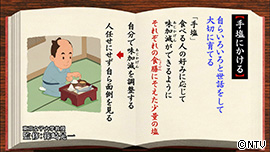 【手塩にかける】
自らいろいろと世話をして
大切に育てる
「手塩」
食べる人の好みに応じて
味加減ができるように
それぞれの食膳にそえた少量の塩
自分で味加減を調整する
人任せにせず自ら面倒を見る
©NTV